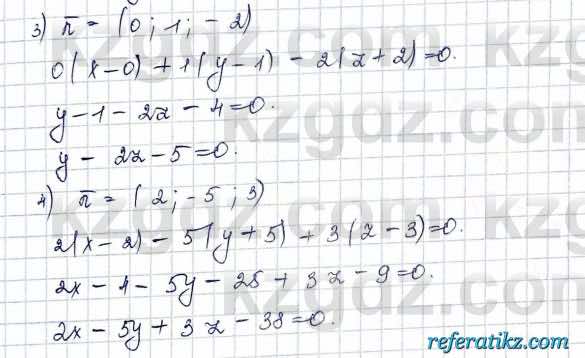 3) n̄ = (0; 1; - 2)
0(x-0) + 1(y-1) - 2(z+2)=0.
y-1-2z-4=0.
y - 2z-5=0.
4) n̄ = (2; -5; 3)
2(x-2) - 5(y+5) + 3(z-3)=0.
2x-4-5y-25+3z-9=0.
2x-5y+3z-38=0.
kzgdz.com
referatikz.com